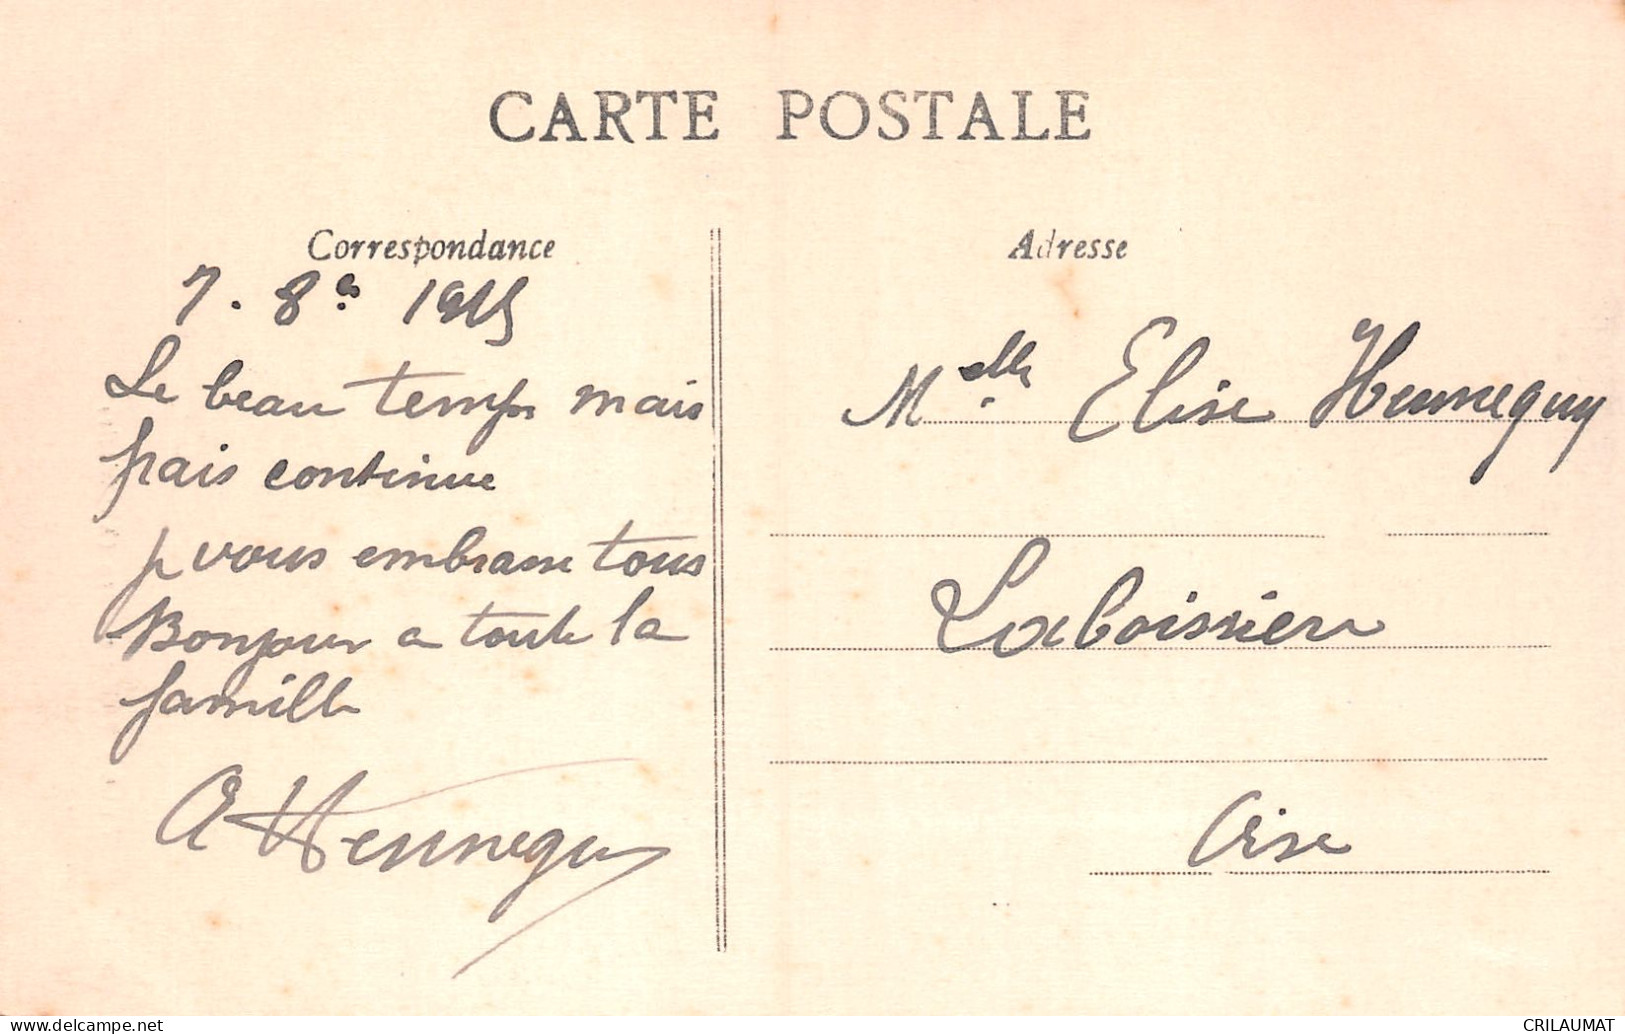 CARTE POSTALE
Correspondance
7. 8e 1915
Le beau temps mais
frais continue
je vous embrasse tous
Bonjour a toute la
famille
A Henneguy
Adresse
Melle Elise Hennequy
Laboissière
Oise
delcampe.net
CRILAUMAT